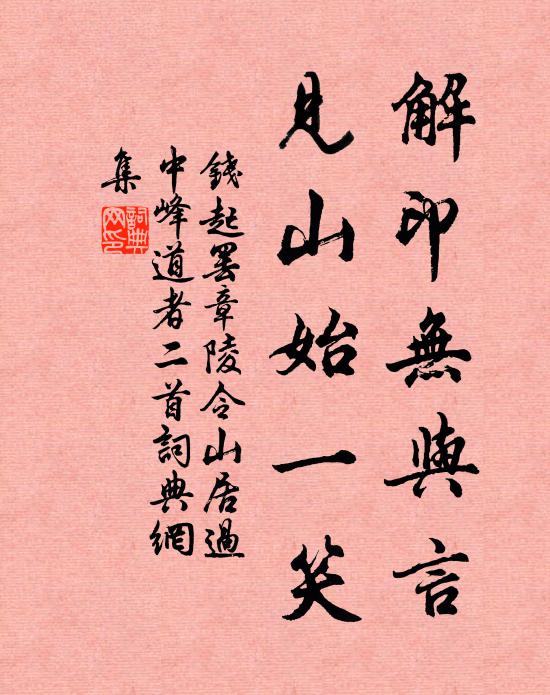 解印無與言
見山始一笑
錢起罷章陵令山居過
中峰道者二首詞典網
集
詞典網印